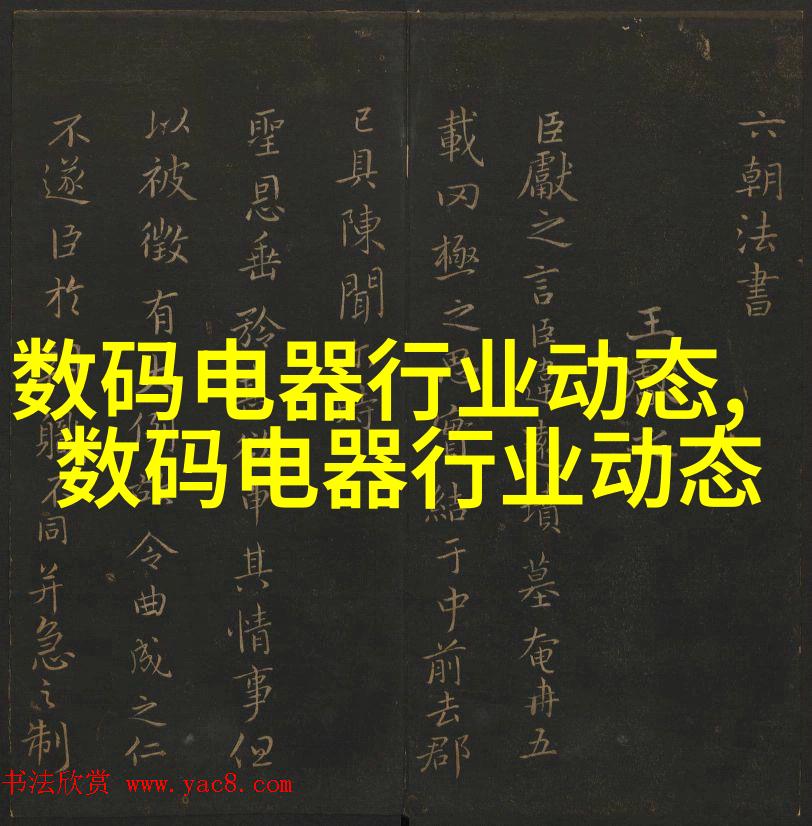 六朝法書
王獻之
臣獻之言臣違遠墳墓奄冉五
載罔極之思實結于中前去郡
已具陳聞
聖恩垂矜其情事但
以被徵有例令曲成之仁
不遂臣於躬不同并急之制
数码电器行业动态,
数码电器行业动态
书法欣赏 www.yac8.com